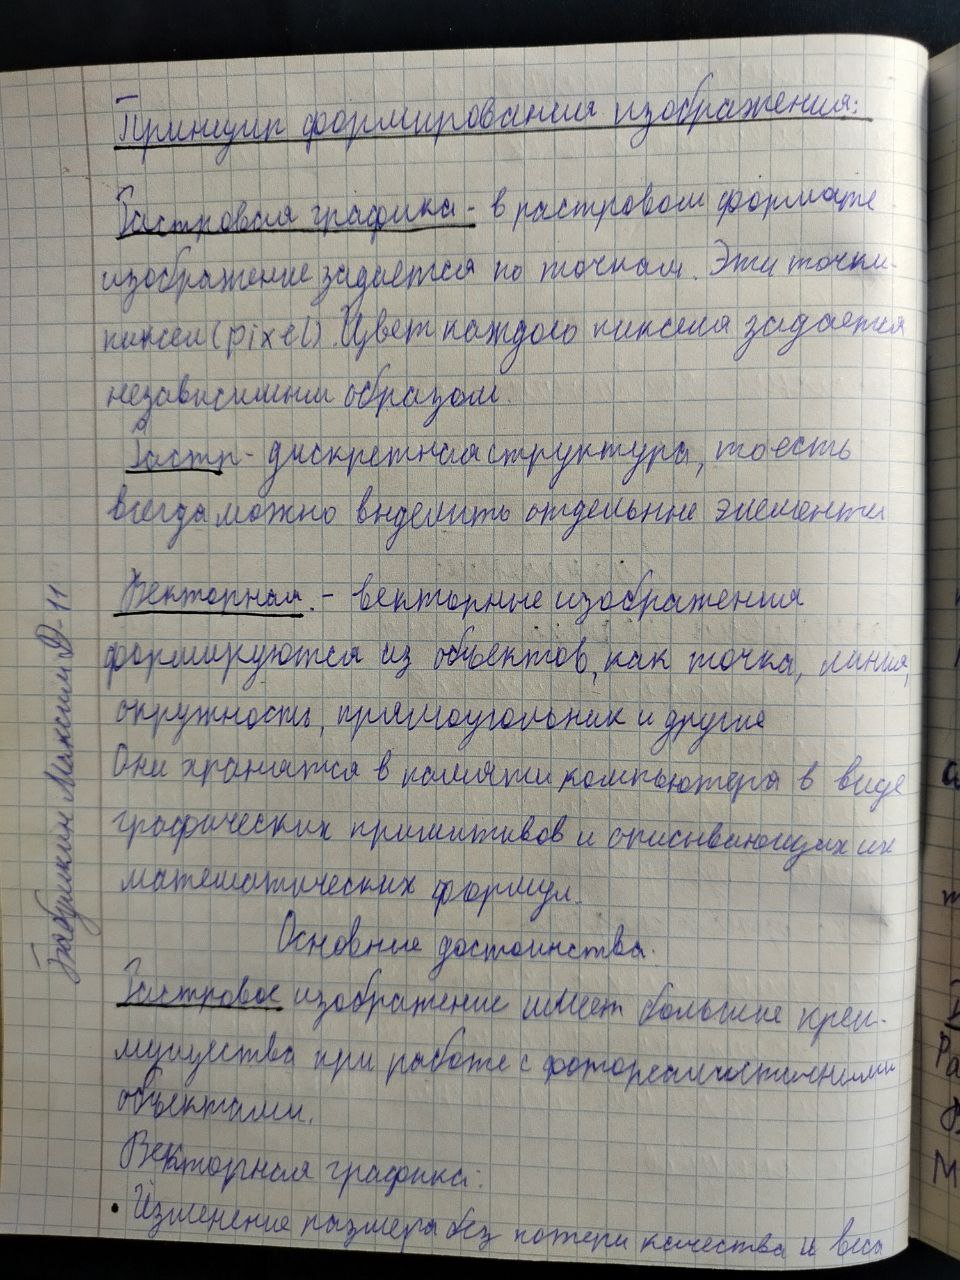 Принцип формирования изображения:
Растровая графика - в растровом формате
изображение задается по точкам. Эти точки-
пиксели (pixel). Цвет каждого пикселя задается
независимым образом.
Растр - дискретная структура, то есть
всегда можно выделить отдельные элементы
Векторная. - векторные изображения
формируются из объектов, как точка, линия,
окружность, прямоугольник и другие
Они хранятся в памяти компьютера в виде
графических примитивов и описывающих их
математических формул.
Основные достоинства.
Растровое изображение имеет большие преи-
мущества при работе с фотореалистичными
объектами.
Векторная графика:
• Изменение размера без потери качества и веса
Бабушкин Максим Д-11